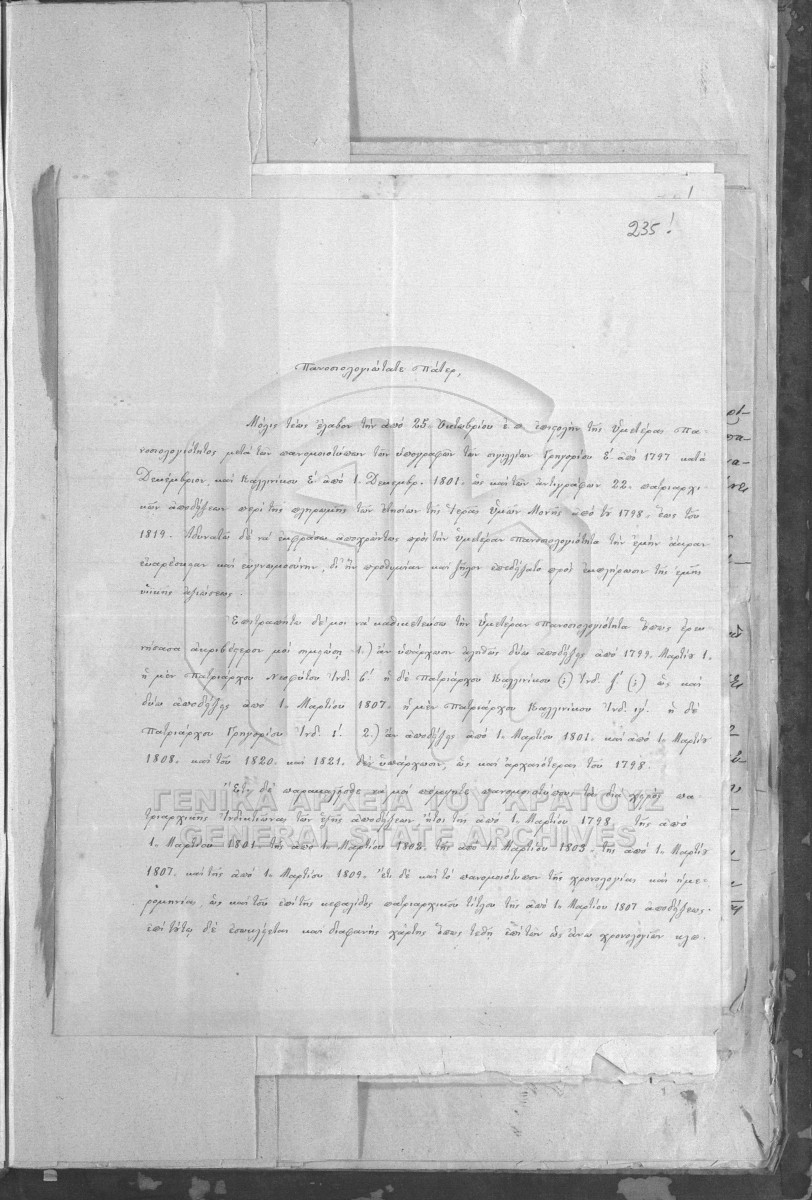 235!
Πανοσιολογιώτατε Πάτερ,
Μόλις τέως έλαβον την από 25 Οκτωβρίου ε.π. επιστολήν της Υμετέρας Πα-
νοσιολογιότητος μετά των πανομοιοτύπων των υπογραφών των σιγιλλίων Γρηγορίου Ε΄ από 1797 κατά
Δεκέμβριον, και Καλλινίκου Ε΄ από 1. Δεκεμβρ. 1801. ως και των αντιγράφων 22. πατριαρχι-
κών αποδείξεων περί της πληρωμής των ετησίων της Ιεράς Υμών Μονής από του 1798. έως του
1819. Αδυνατώ δε να εκφράσω αποχρώντως προς την Υμετέραν Πανοσιολογιότητα την εμήν άκραν
ευαρέσκειαν και ευγνωμοσύνην, δι' ην προθυμίαν και ζήλον επεδείξατο προς εκπλήρωσιν της εμής
αξιώσεως.
Επιτραπήτω δέ μοι να καθικετεύσω την Υμετέραν Πανοσιολογιότητα όπως ερευ-
νήσασα ακριβέστερον μοι σημειώση 1.) αν υπάρχωσιν αληθώς δύω αποδείξεις από 1799. Μαρτίου 1.
η μεν Πατριάρχου Νεοφύτου Ινδ. β΄. η δε Πατριάρχου Καλλινίκου (;) Ινδ. ζ΄ (;) ως και
δύω αποδείξεις από 1ης Μαρτίου 1807. η μεν Πατριάρχου Καλλινίκου Ινδ. ιγ΄. η δε
Πατριάρχου Γρηγορίου Ινδ. ι΄. 2.) αν αποδείξεις από 1ης Μαρτίου 1801. και από 1ης Μαρτίου
1808. και του 1820. και 1821. δεν υπάρχωσιν, ως και αρχαιότεραι του 1798.
Έτι δε παρακαλείσθε να μοι πορίσητε πανομοιοτύπους τας διά χειρός πα-
τριαρχικής Ινδικτιώνας των εξής αποδείξεων ήτοι της από 1ης Μαρτίου 1798. της από
1ης Μαρτίου 1801. της από 1ης Μαρτίου 1802. της από 1ης Μαρτίου 1803. της από 1ης Μαρτίου
1807. και της από 1ης Μαρτίου 1809. έτι δε και το πανομοιότυπον της χρονολογίας και ημε-
ρομηνίας, ως και του επί της κεφαλίδος πατριαρχικού τίτλου της από 1ης Μαρτίου 1807 αποδείξεως.
επί τούτω δε εσωκλείεται και διαφανής χάρτης όπως τεθή επί των ως άνω χρονολογιών κλπ.
ΓΕΝΙΚΑ ΑΡΧΕΙΑ ΤΟΥ ΚΡΑΤΟΥΣ
GENERAL STATE ARCHIVES